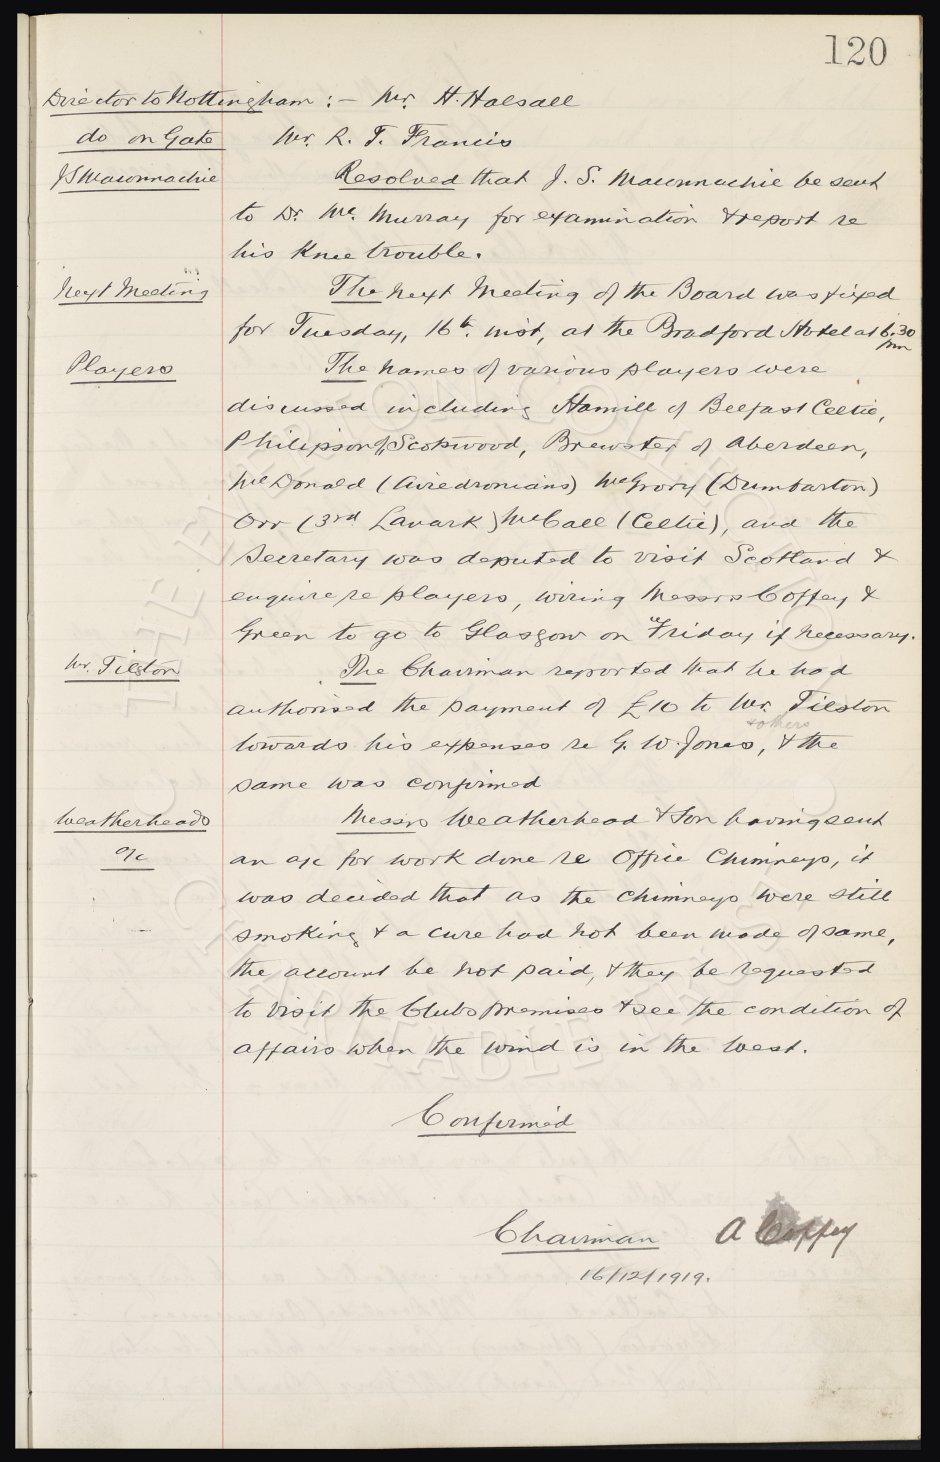 120
Director to Nottingham :- Mr. H. Halsall
do on Gate Mr. R. T. Francis
J S Maconnachie Resolved that J. S. Maconnachie be sent
to Dr. Mc. Murray for examination & report re
his Knee trouble.
Next Meeting The Next Meeting of the Board was fixed
for Tuesday, 16th. inst, at the Bradford Hotel at 6.30
pm
Players The names of various players were
discussed including Hamill of Belfast Celtic,
Philipson of Scotswood, Brewster of Aberdeen,
McDonald (Airedronians) McGrory (Dumbarton)
Orr (3rd Lanark) McCall (Celtic), and the
Secretary was deputed to visit Scotland &
enquire re players, wiring Messrs Coffey &
Green to go to Glasgow on Friday if necessary.
Mr. Tilston The Chairman reported that he had
authorised the payment of £10 to Mr. Tilston
& others
towards his expenses re G. W. Jones, & the
same was confirmed
Weatherheads Messrs Weatherhead & Son having sent
a/c an a/c for work done re Office Chimneys, it
was decided that as the chimneys were still
smoking & a cure had not been made of same,
the account be not paid, & they be requested
to visit the Clubs premises & see the condition of
affairs when the wind is in the West.
Confirmed
Chairman A Coffey
16/12/1919.